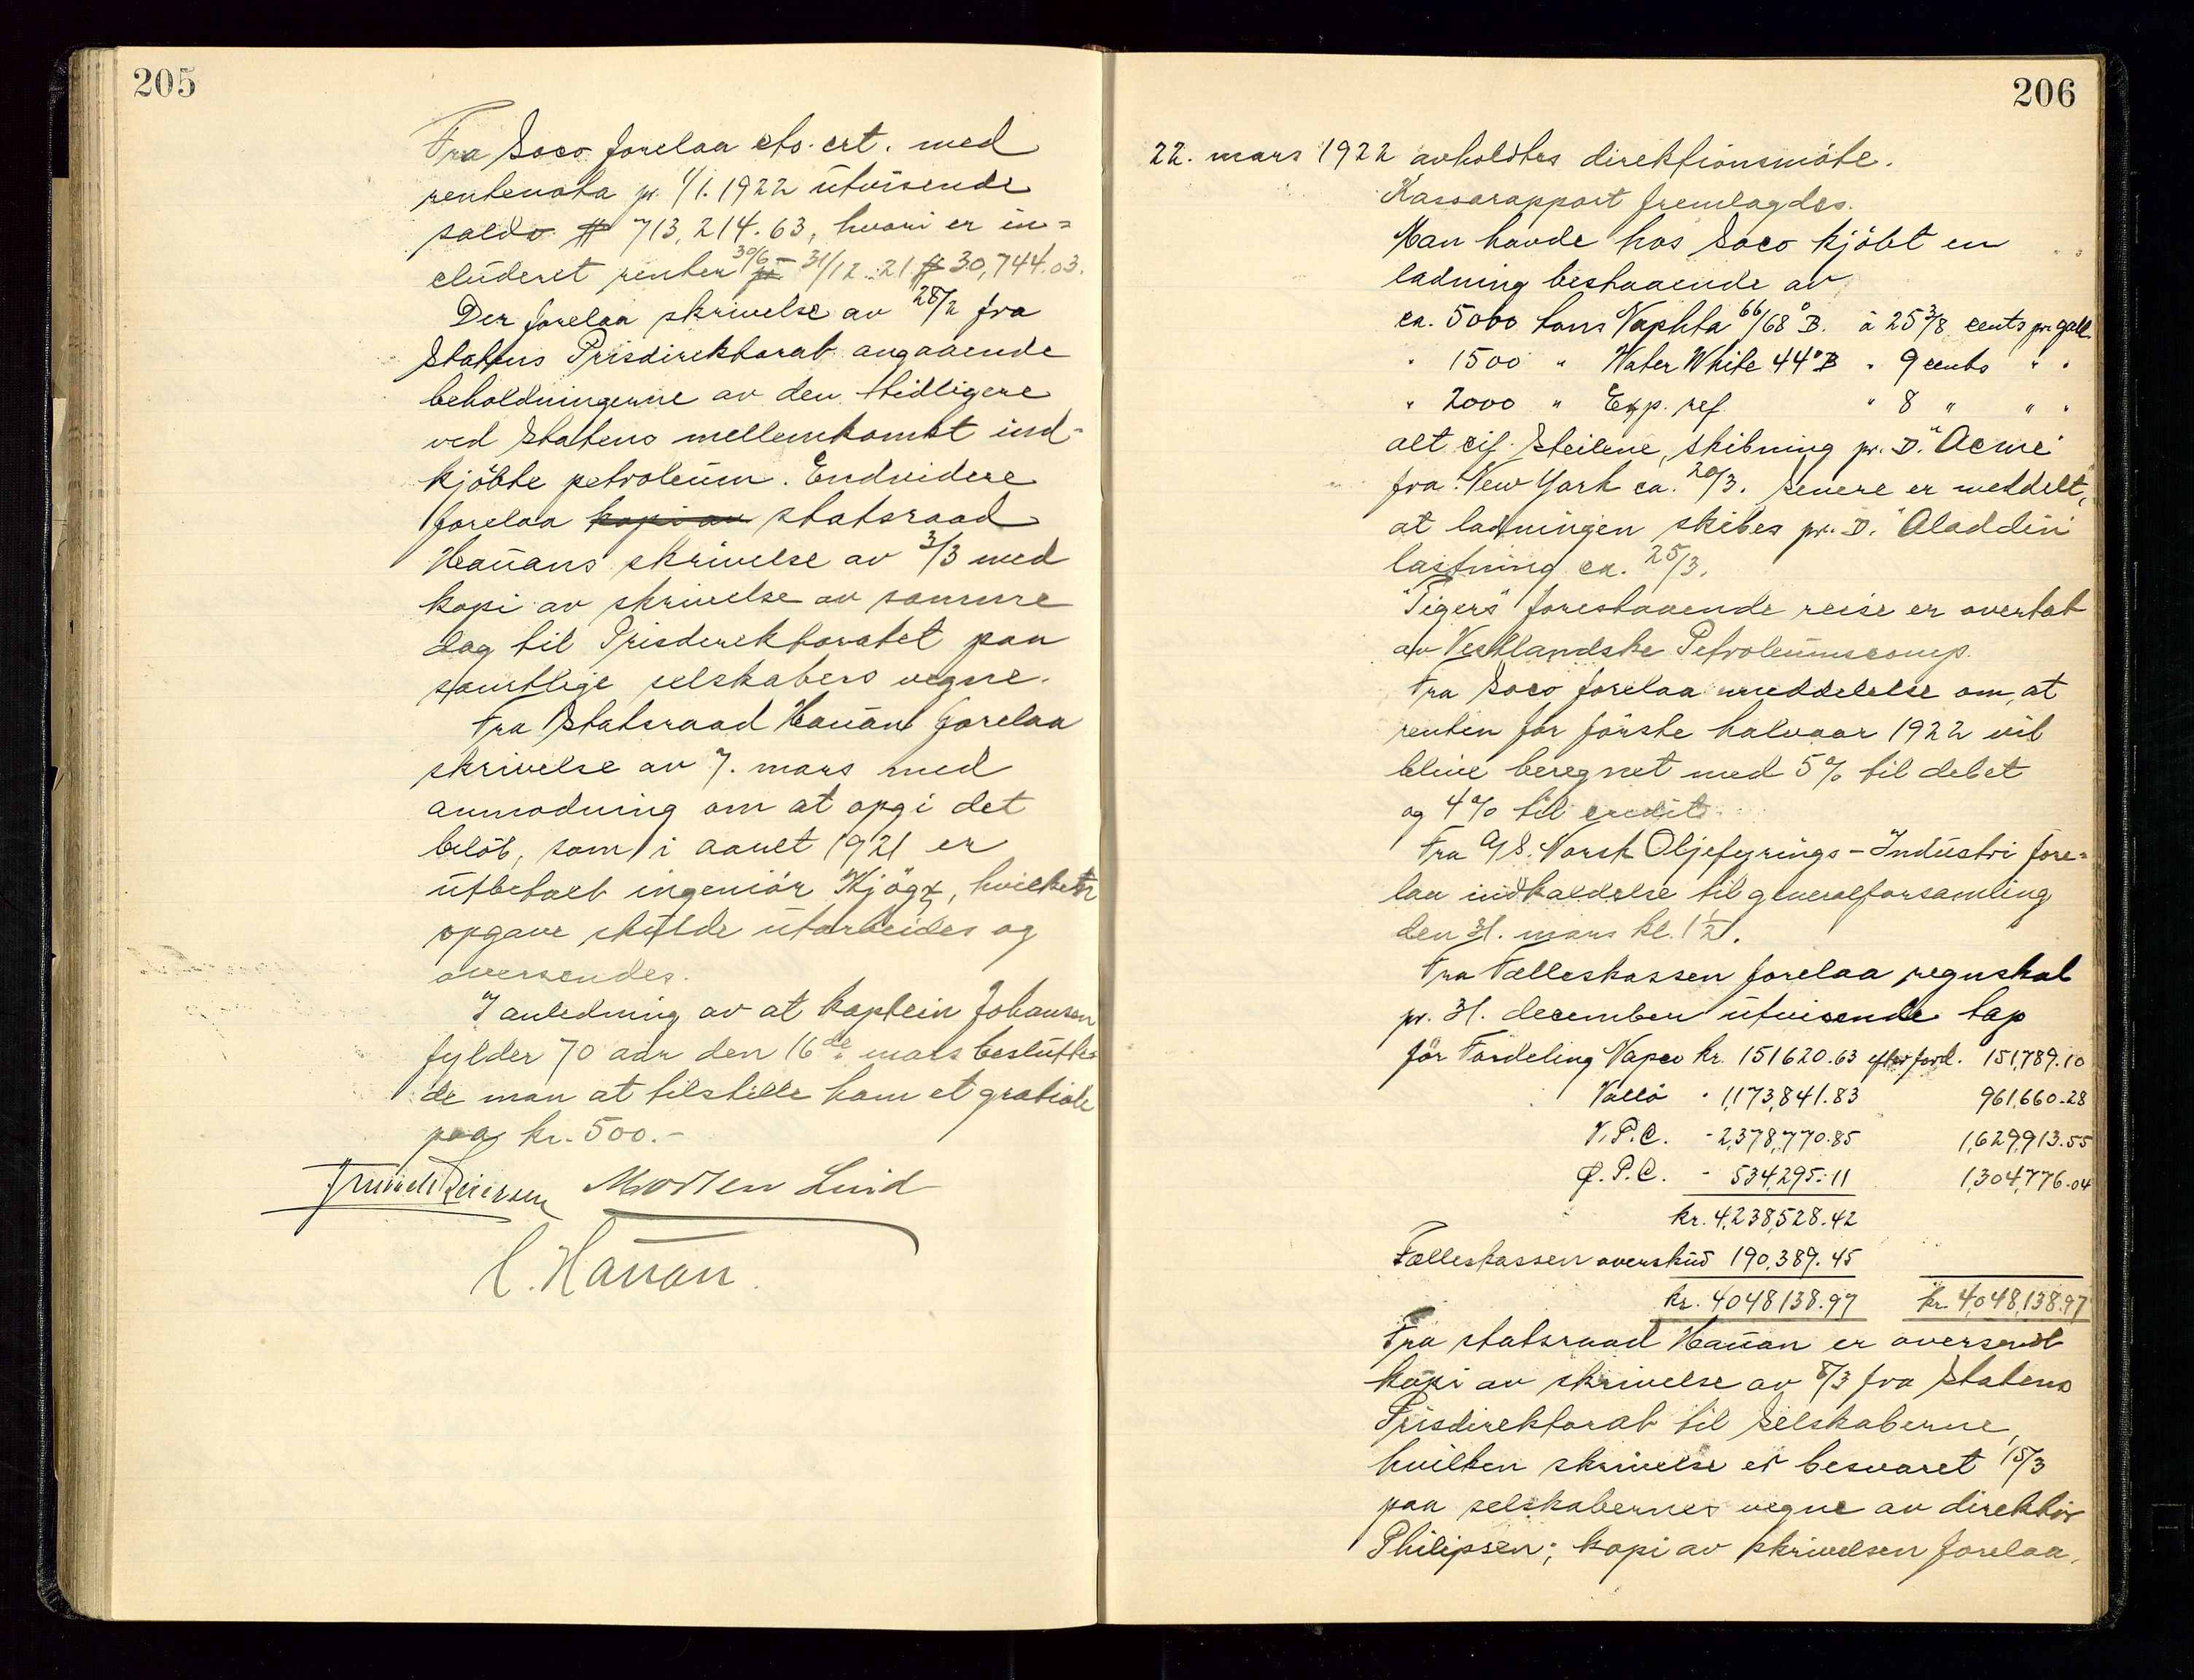 205
Fra Soco forelaa cto. crt. med
rentenota pr. 1/1. 1922 utvisende
saldo $ 713,214.63, hvori er in=
cluderet renter 30/6 - 31/12 21 $ 30,744.03.
Der forelaa skrivelse av 28/2 fra
Statens Prisdirektorat angaaende
beholdningerne av den tidligere
ved Statens mellemkomst ind-
kjöbte petroleum. Endvidere
forelaa kopi av statsraad
Hauans skrivelse av 3/3 med
kopi av skrivelse av samme
dag til Prisdirektoratet paa
samtlige selskabers vegne.
Fra Statsraad Hauan forelaa
skrivelse av 7. mars med
anmodning om at opgi det
belöb, som i aaret 1921 er
utbetalt ingeniör , hvilken
opgave skulde utarbeides og
oversendes.
I anledning av at kaptein Johansen
fylder 70 aar den 16de mars beslutte-
de man at tilstille ham et gratiale
paa kr. 500.-
Morten Lind
C. Hauan.
206
22. mars 1922 avholdtes direktionsmöte.
Kassarapport fremlagdes.
Man havde hos Soco kjöbt en
ladning bestaaende av
ca. 5000 tons Naphta 66/68° B. à 25 3/8 cents pr gall.
" 1500 " Water White 44° B " 9 cents " "
" 2000 " Exp. ref. " 8 " " "
alt cif. Steilene, skibning pr. D. "Acme"
fra New York ca. 20/3. Senere er meddelt,
at ladningen skibes pr. D. "Aladdin"
lastning ca. 25/3.
"Tigers" forestaaende reise er overtat
av Vestlandske Petroleumscomp.
Fra Soco forelaa meddelelse om, at
renten for förste halvaar 1922 vil
blive beregnet med 5% til debet
og 4% til credit.
Fra A/S. Norsk Oljefyrings-Industri fore=
laa indkaldelse til generalforsamling
den 31. mars kl. 1½.
Fra Fælleskassen forelaa regnskab
pr. 31. december utvisende tap
för Fordeling Napco kr. 151620.63 efter ford. 151,789.10
Vallö " 1,173,841.83 961,660.28
V.P.C. - 2,378,770.85 1,629,913.55
Ö.P.C. - 534,295.11 1,304,776.04
kr. 4,238,528.42
Fælleskassen overskud 190,389.45
kr. 4048138.97 kr. 4,048,138.97
Fra statsraad Hauan er oversendt
kopi av skrivelse av 8/3 fra Statens
Prisdirektorat til selskaberne,
hvilken skrivelse er besvaret 15/3
paa selskabernes vegne av direktör
Philipsen; kopi av skrivelsen forelaa.